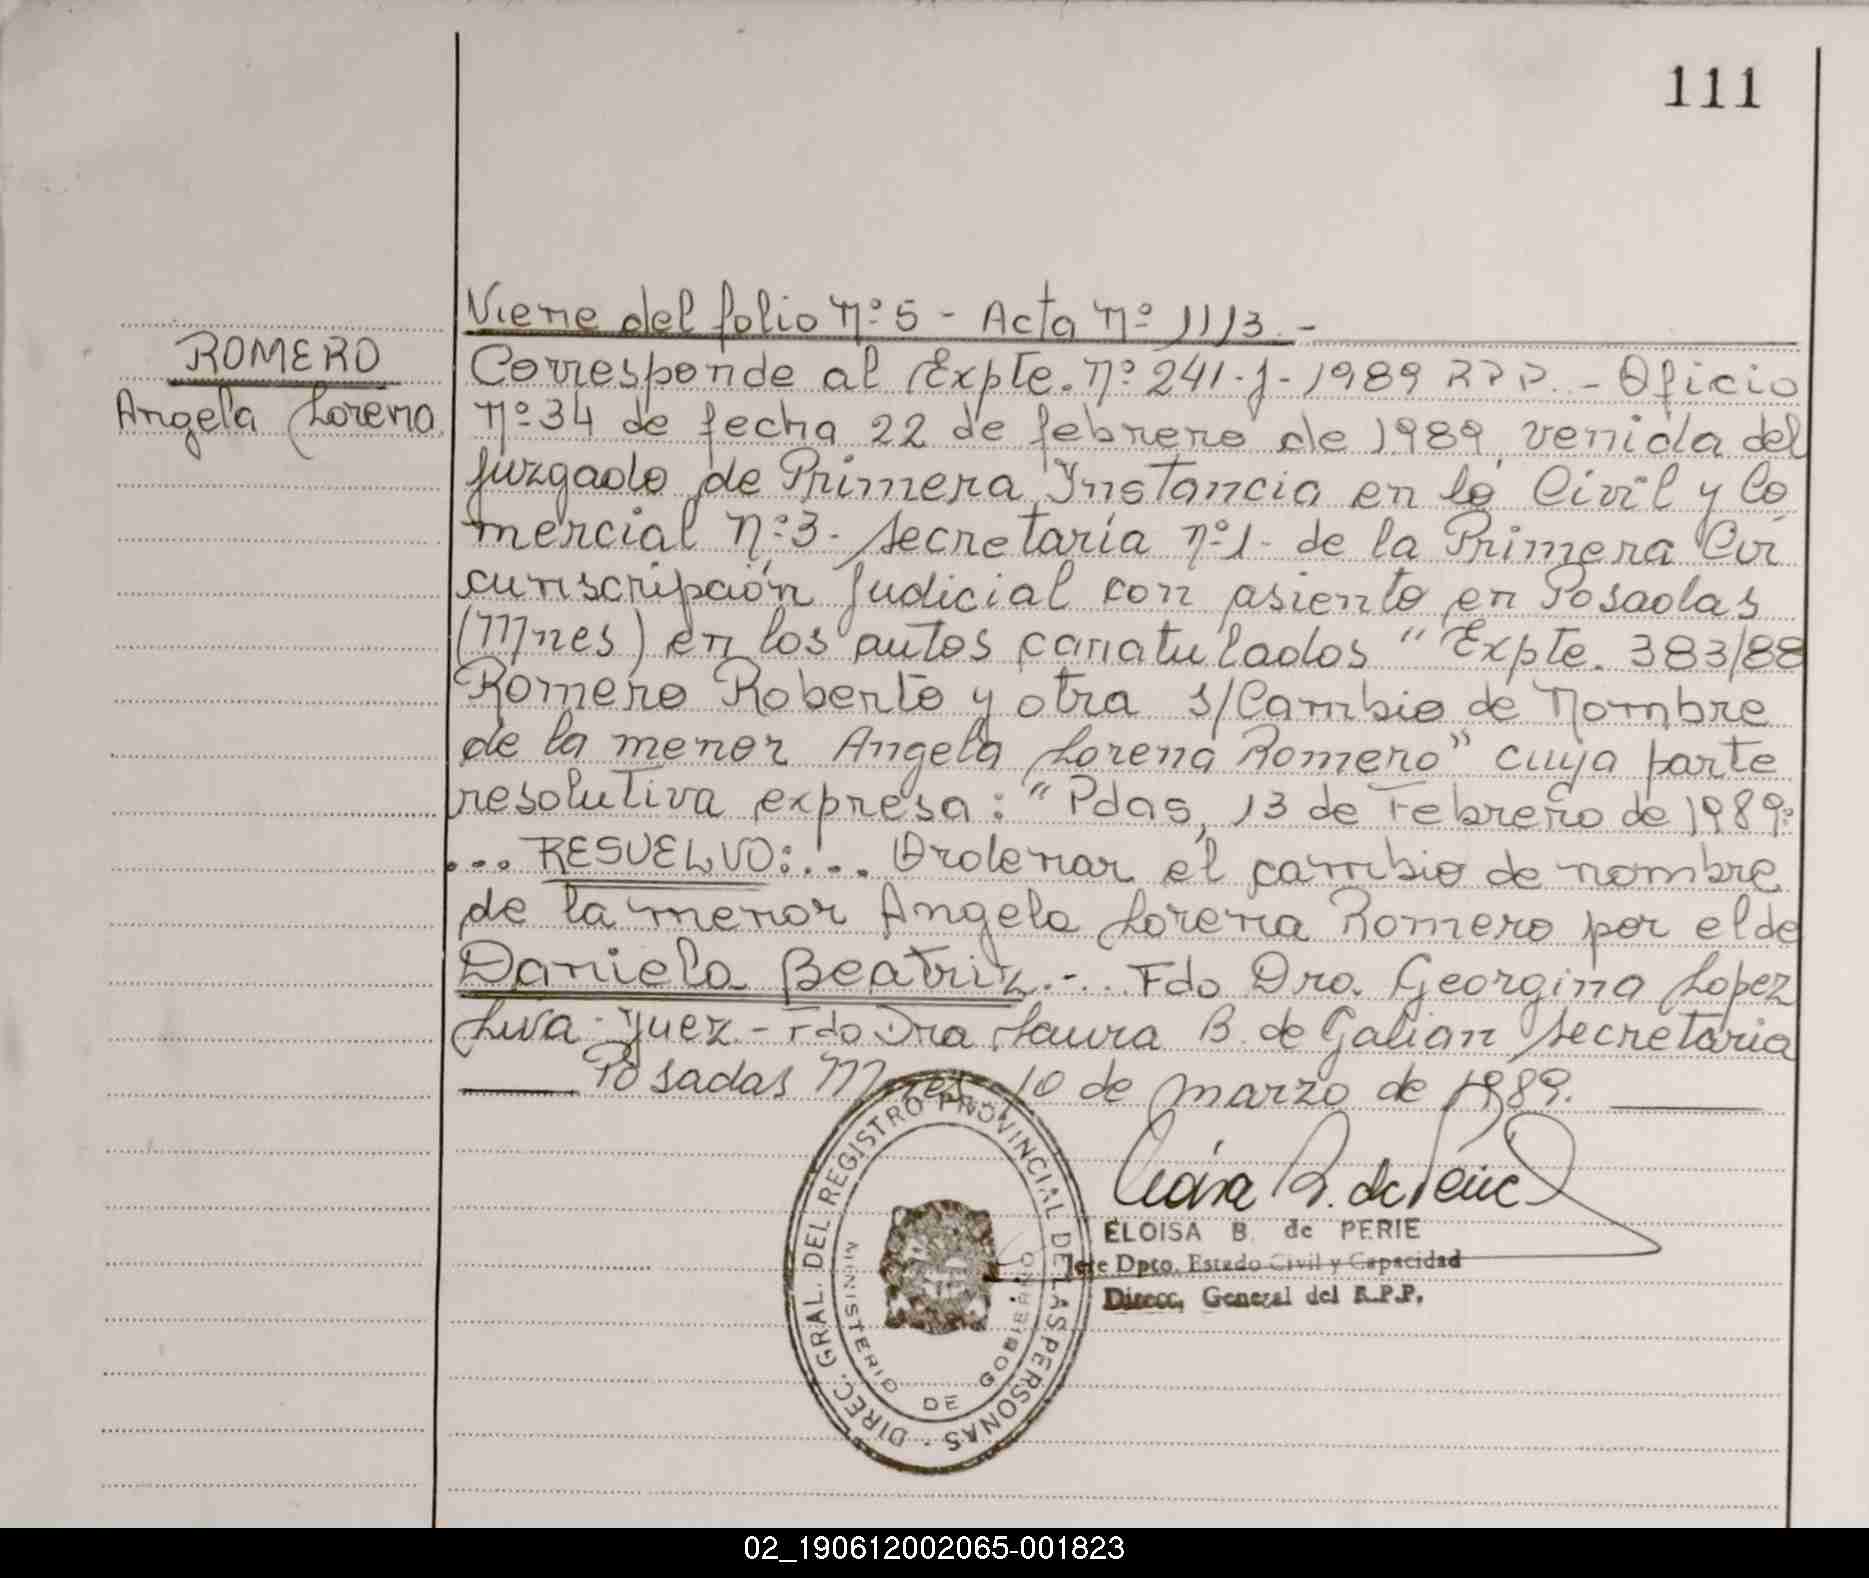 111
Viene del folio Nº 5 - Acta Nº 1113.-
ROMERO
Angela Lorena.
Corresponde al Expte. Nº 241-J-1989 RPP. - Oficio
Nº 34 de fecha 22 de febrero de 1989, venida del
Juzgado de Primera Instancia en lo Civil y Co
mercial Nº 3. Secretaría Nº 1 - de la Primera Cir
cunscripción Judicial con asiento en Posadas
(Mnes) en los autos caratulados " Expte. 383/88
Romero Roberto y otra s/Cambio de Nombre
de la menor Angela Lorena Romero" cuya parte
resolutiva expresa: "Pdas, 13 de Febrero de 1989:
... RESUELVO: ... Ordenar el cambio de nombre
de la menor Angela Lorena Romero por el de
Daniela Beatriz.-.. Fdo Dra. Georgina Lopez
Liva - Juez - Fdo Dra Laura B. de Galian Secretaria
Posadas Mnes 10 de marzo de 1989.
DIREC. GRAL. DEL REGISTRO PROVINCIAL DE LAS PERSONAS
MINISTERIO DE GOBIERNO
ELOISA B. de PERIE
Jefe Dpto. Estado Civil y Capacidad
Direcc. General del R.P.P.
02_190612002065-001823